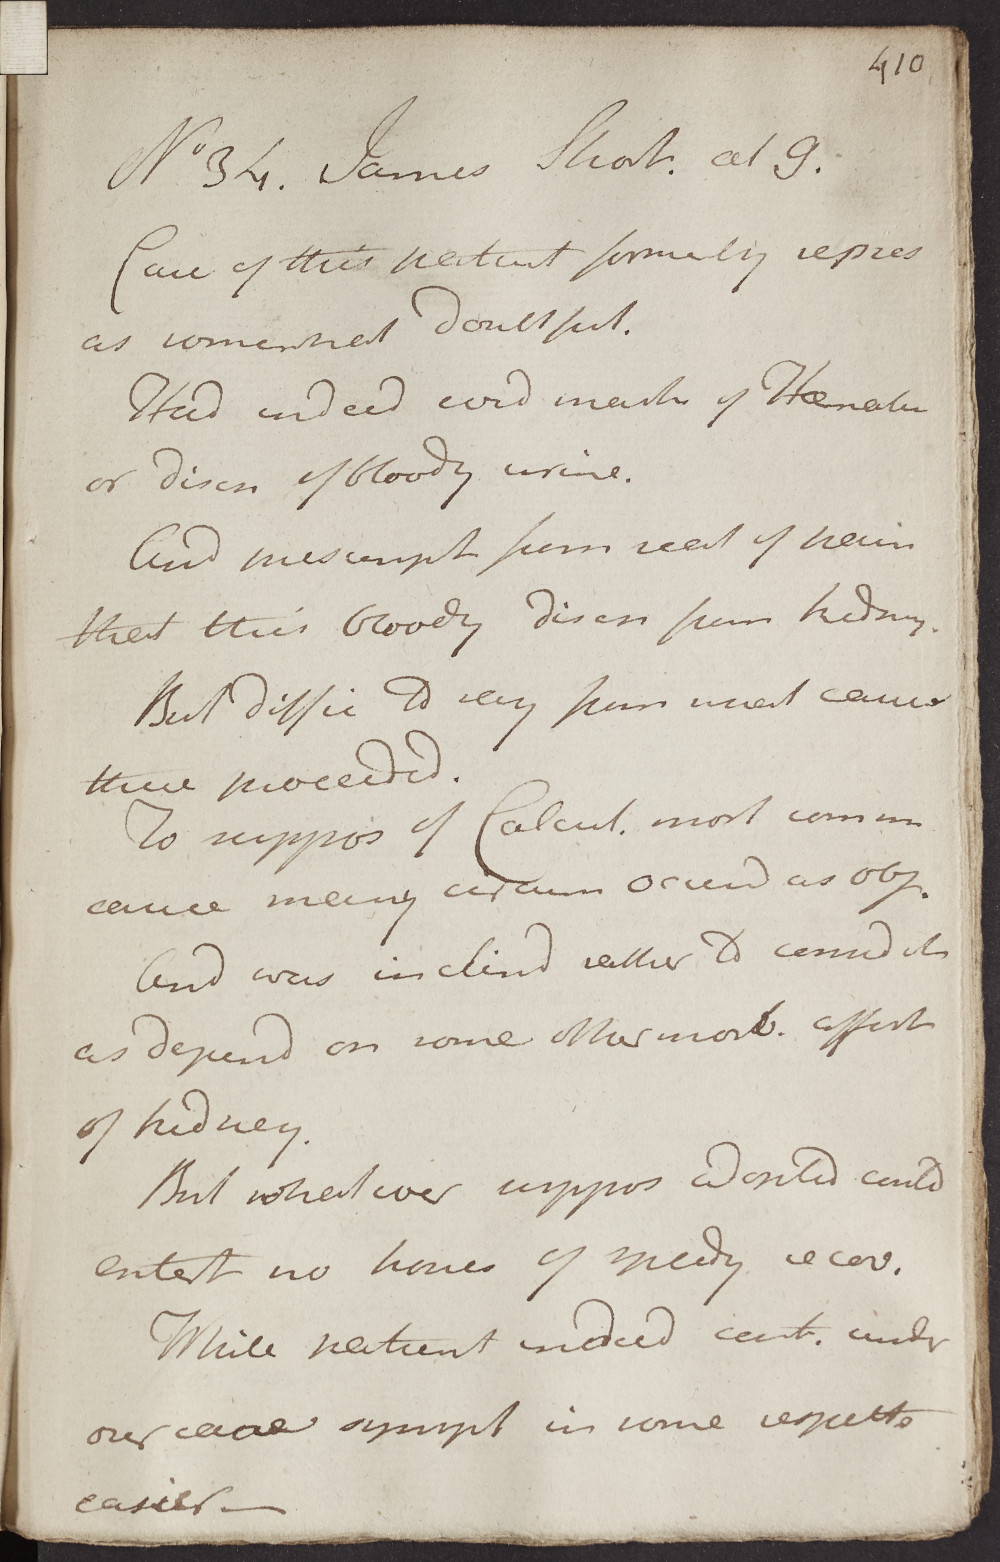 410
No 34. James Short. aet 9.
Case of this patient formerly repres
as somewhat doubtful.
Had indeed evid marks of Hæmatu
or disch of bloody urine.
And presumpt from seat of pain
that this bloody disch from kidney.
But diffic to say from what cause
these proceeded.
To suppos of Calcul. most comm
cause many circum occurd as obj.
And was inclind rather to consid it
as depend on some other morb. affect
of kidney.
But whatever suppos adopted could
entert no hopes of speedy recov.
While patient indeed cont. under
our care sympt in some respects
easier—